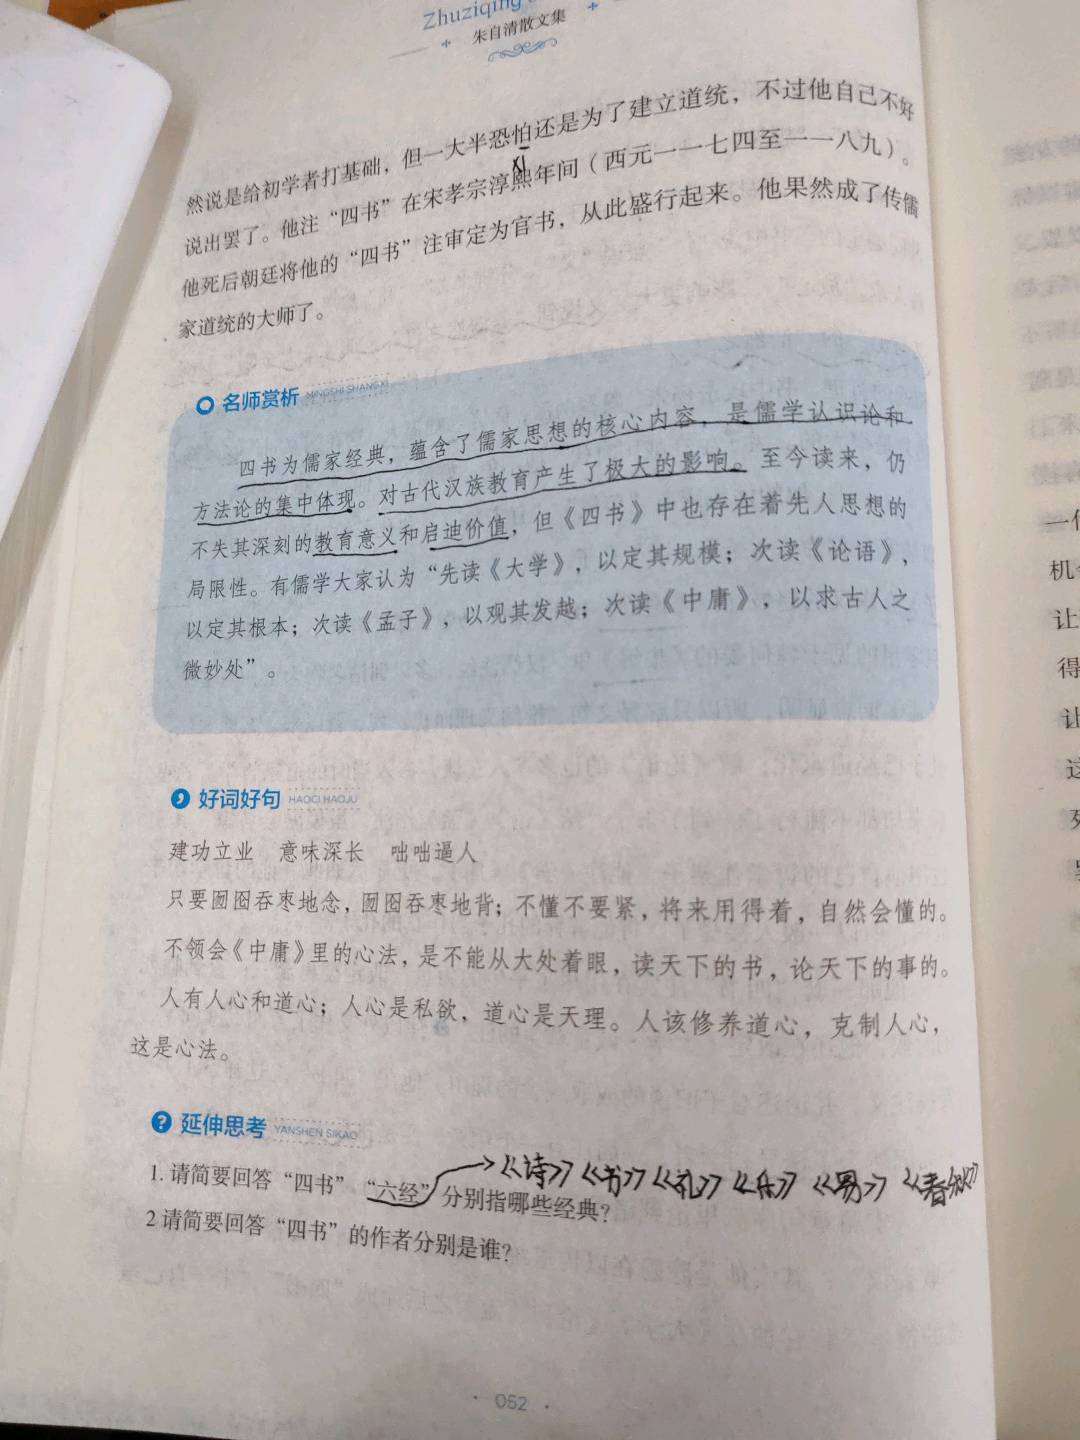 Zhuziqing
朱自清散文集
然说是给初学者打基础，但一大半恐怕还是为了建立道统，不过他自己不好
XI
说出罢了。他注“四书”在宋孝宗淳熙年间（西元一一七四至一一八九）。
他死后朝廷将他的“四书”注审定为官书，从此盛行起来。他果然成了传儒
家道统的大师了。
名师赏析 MINGSHI SHANGXI
四书为儒家经典，蕴含了儒家思想的核心内容，是儒学认识论和
方法论的集中体现。对古代汉族教育产生了极大的影响。至今读来，仍
不失其深刻的教育意义和启迪价值，但《四书》中也存在着先人思想的
局限性。有儒学大家认为“先读《大学》，以定其规模；次读《论语》，
以定其根本；次读《孟子》，以观其发越；次读《中庸》，以求古人之
微妙处”。
好词好句 HAOCI HAOJU
建功立业 意味深长 咄咄逼人
只要囫囵吞枣地念，囫囵吞枣地背；不懂不要紧，将来用得着，自然会懂的。
不领会《中庸》里的心法，是不能从大处着眼，读天下的书，论天下的事的。
人有人心和道心；人心是私欲，道心是天理。人该修养道心，克制人心，
这是心法。
? 延伸思考 YANSHEN SIKAO
《诗》《书》《礼》《乐》《易》《春秋》
1. 请简要回答“四书”“六经”分别指哪些经典？
2 请简要回答“四书”的作者分别是谁？
· 052 ·
一
机
让
得
让
这